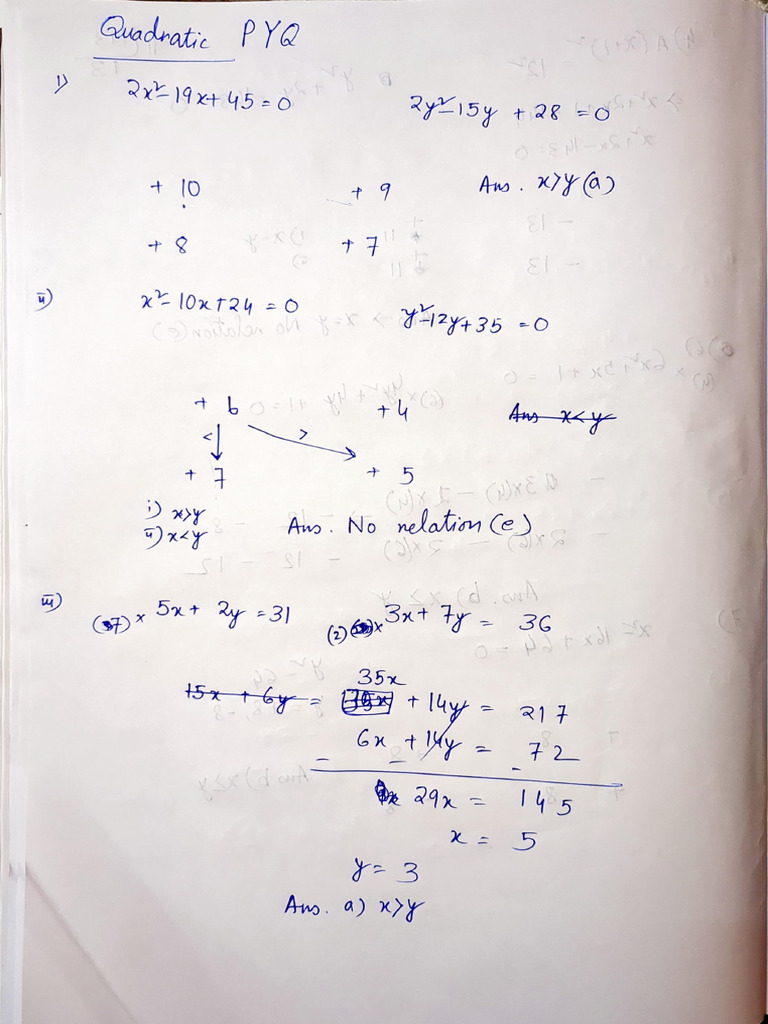 Quadratic PYQ
i) 2x²-19x+45=0 2y²-15y+28=0
+ 10 + 9 Ans. x>y (a)
+ 8 + 7
ii) x²-10x+24=0 y²-12y+35=0
+ 6 + 4 Ans x<y
< >
+ 7 + 5
i) x>y
ii) x<y Ans. No relation (e)
iii) (7) × 5x+ 2y=31 (2) × 3x+ 7y= 36
35x
15x + 6y = + 14y = 217
6x + 14y = 72
- - -
29x = 145
x = 5
y= 3
Ans. a) x>y